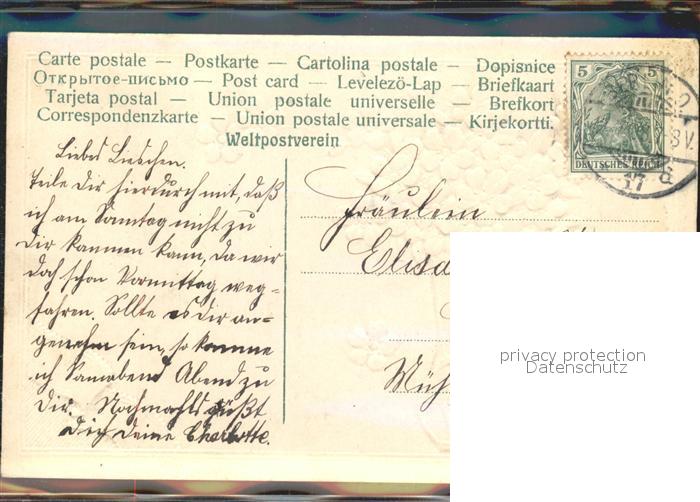 Carte postale — Postkarte — Cartolina postale — Dopisnice
Открытое-письмо — Post card — Levelezö-Lap — Briefkaart
Tarjeta postal — Union postale universelle — Brefkort
Correspondenzkarte — Union postale universale — Kirjekortti.
Weltpostverein
5 5
DEUTSCHES REICH
Liebes Lieschen.
Teile Dir hierdurch mit, daß
ich am Sonntag nicht zu
Dir kommen kann, da wir
doch schon Vormittag weg-
fahren. Sollte es Dir an-
genehm sein, so komme
ich Sonnabend Abend zu
Dir. Nochmals grüßt
Dich Deine Charlotte.
Fräulein
Elisa
Müh
privacy protection
Datenschutz